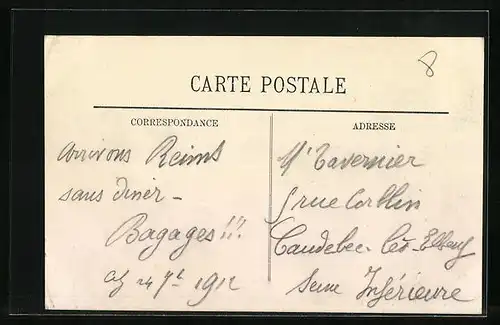 8
CARTE POSTALE
CORRESPONDANCE
arrivons Reims
sans diner -
Bagages !!!
1912
ADRESSE
Mr Tavernier
rue
Caudebec-lès-Elbeuf
Seine Inférieure